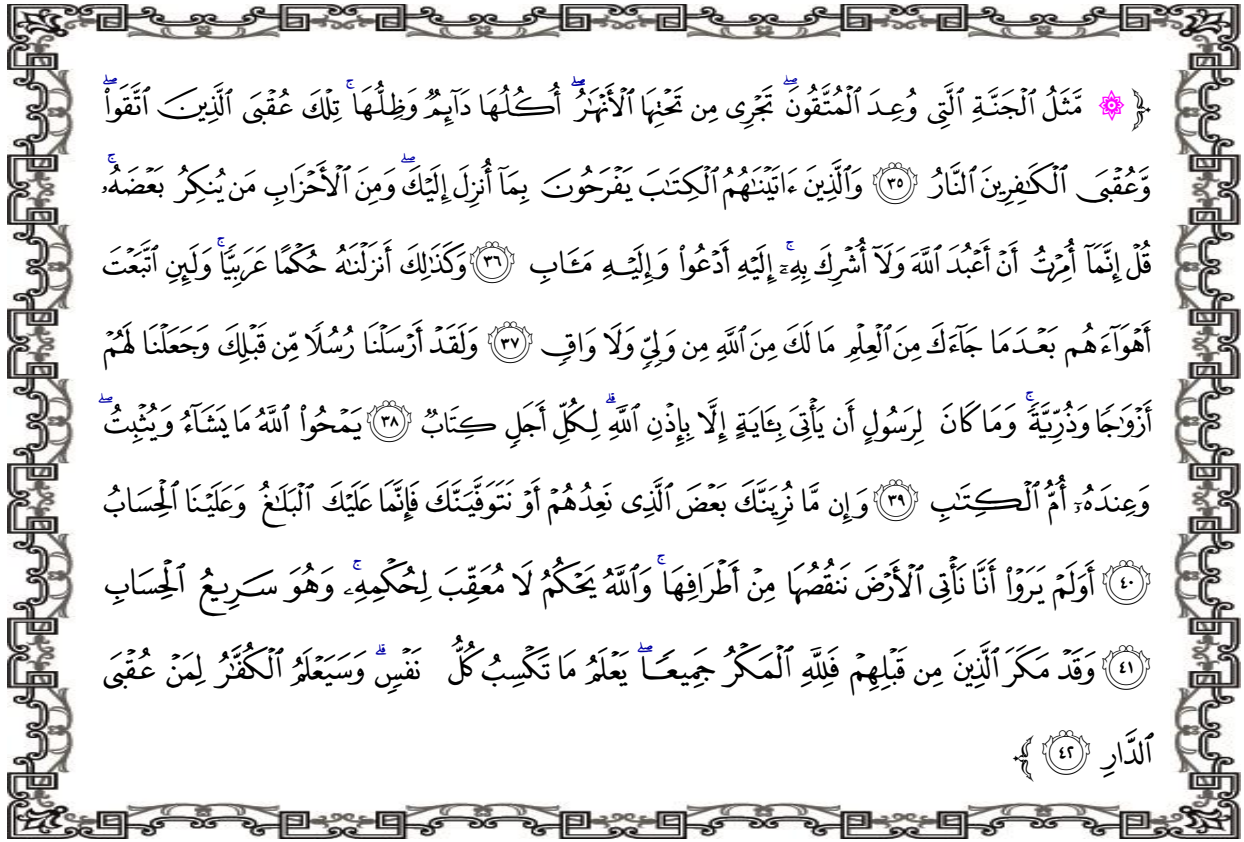 ﴿ ۞ مَّثَلُ ٱلْجَنَّةِ ٱلَّتِى وُعِدَ ٱلْمُتَّقُونَ ۖ تَجْرِى مِن تَحْتِهَا ٱلْأَنْهَٰرُ ۖ أُكُلُهَا دَآئِمٌ وَظِلُّهَا ۚ تِلْكَ عُقْبَى ٱلَّذِينَ ٱتَّقَوا۟ ۖ
وَّعُقْبَى ٱلْكَٰفِرِينَ ٱلنَّارُ ﴿٣٥﴾ وَٱلَّذِينَ ءَاتَيْنَٰهُمُ ٱلْكِتَٰبَ يَفْرَحُونَ بِمَآ أُنزِلَ إِلَيْكَ ۖ وَمِنَ ٱلْأَحْزَابِ مَن يُنكِرُ بَعْضَهُۥ ۚ
قُلْ إِنَّمَآ أُمِرْتُ أَنْ أَعْبُدَ ٱللَّهَ وَلَآ أُشْرِكَ بِهِۦٓ ۚ إِلَيْهِ أَدْعُوا۟ وَإِلَيْهِ مَـَٔابِ ﴿٣٦﴾ وَكَذَٰلِكَ أَنزَلْنَٰهُ حُكْمًا عَرَبِيًّا ۚ وَلَئِنِ ٱتَّبَعْتَ
أَهْوَآءَهُم بَعْدَمَا جَآءَكَ مِنَ ٱلْعِلْمِ مَا لَكَ مِنَ ٱللَّهِ مِن وَلِىٍّ وَلَا وَاقٍ ﴿٣٧﴾ وَلَقَدْ أَرْسَلْنَا رُسُلًا مِّن قَبْلِكَ وَجَعَلْنَا لَهُمْ
أَزْوَٰجًا وَذُرِّيَّةً ۚ وَمَا كَانَ لِرَسُولٍ أَن يَأْتِىَ بِـَٔايَةٍ إِلَّا بِإِذْنِ ٱللَّهِ ۗ لِكُلِّ أَجَلٍ كِتَابٌ ﴿٣٨﴾ يَمْحُوا۟ ٱللَّهُ مَا يَشَآءُ وَيُثْبِتُ ۖ
وَعِندَهُۥٓ أُمُّ ٱلْكِتَٰبِ ﴿٣٩﴾ وَإِن مَّا نُرِيَنَّكَ بَعْضَ ٱلَّذِى نَعِدُهُمْ أَوْ نَتَوَفَّيَنَّكَ فَإِنَّمَا عَلَيْكَ ٱلْبَلَٰغُ وَعَلَيْنَا ٱلْحِسَابُ
﴿٤٠﴾ أَوَلَمْ يَرَوْا۟ أَنَّا نَأْتِى ٱلْأَرْضَ نَنقُصُهَا مِنْ أَطْرَافِهَا ۚ وَٱللَّهُ يَحْكُمُ لَا مُعَقِّبَ لِحُكْمِهِۦ ۚ وَهُوَ سَرِيعُ ٱلْحِسَابِ
﴿٤١﴾ وَقَدْ مَكَرَ ٱلَّذِينَ مِن قَبْلِهِمْ فَلِلَّهِ ٱلْمَكْرُ جَمِيعًا ۖ يَعْلَمُ مَا تَكْسِبُ كُلُّ نَفْسٍ ۗ وَسَيَعْلَمُ ٱلْكُفَّٰرُ لِمَنْ عُقْبَى
ٱلدَّارِ ﴿٤٢﴾ ﴾